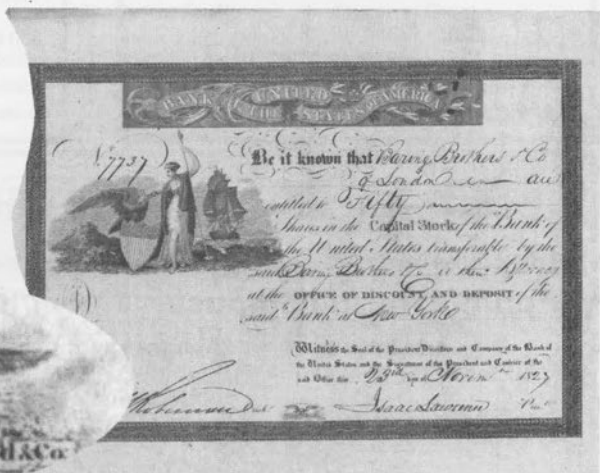 BANK OF THE UNITED STATES OF AMERICA
No. 7737
Be it known that Baring Brothers & Co
of London are
entitled to Fifty
Shares in the Capital Stock of the Bank of
the United States transferable by the
said Baring Brothers & Co or their Attorney
at the OFFICE OF DISCOUNT AND DEPOSIT of the
said Bank at New York
Witness the Seal of the President Directors and Company of the Bank of
the United States and the Signatures of the President and Cashier of the
said Office this 23rd day of Novem 1827
Isaac Lawrence
& Co.